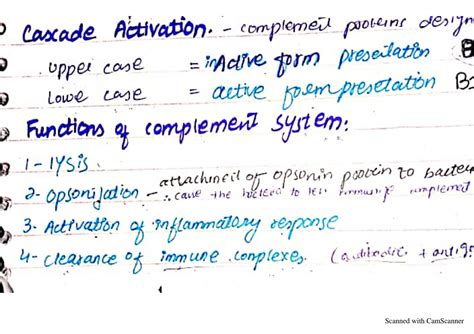 Cascade Activation. - complement proteins design
upper case = inActive form presentation B
lowe case = active form presetation B5
Functions of complement system:
1- lysis
2- Opsonization - attachment of opsonin protein to bacte
cause the to complement
3. Activation of inflammatory response
4- Clearance of immune complexes. (antibodie + antig
Scanned with CamScanner